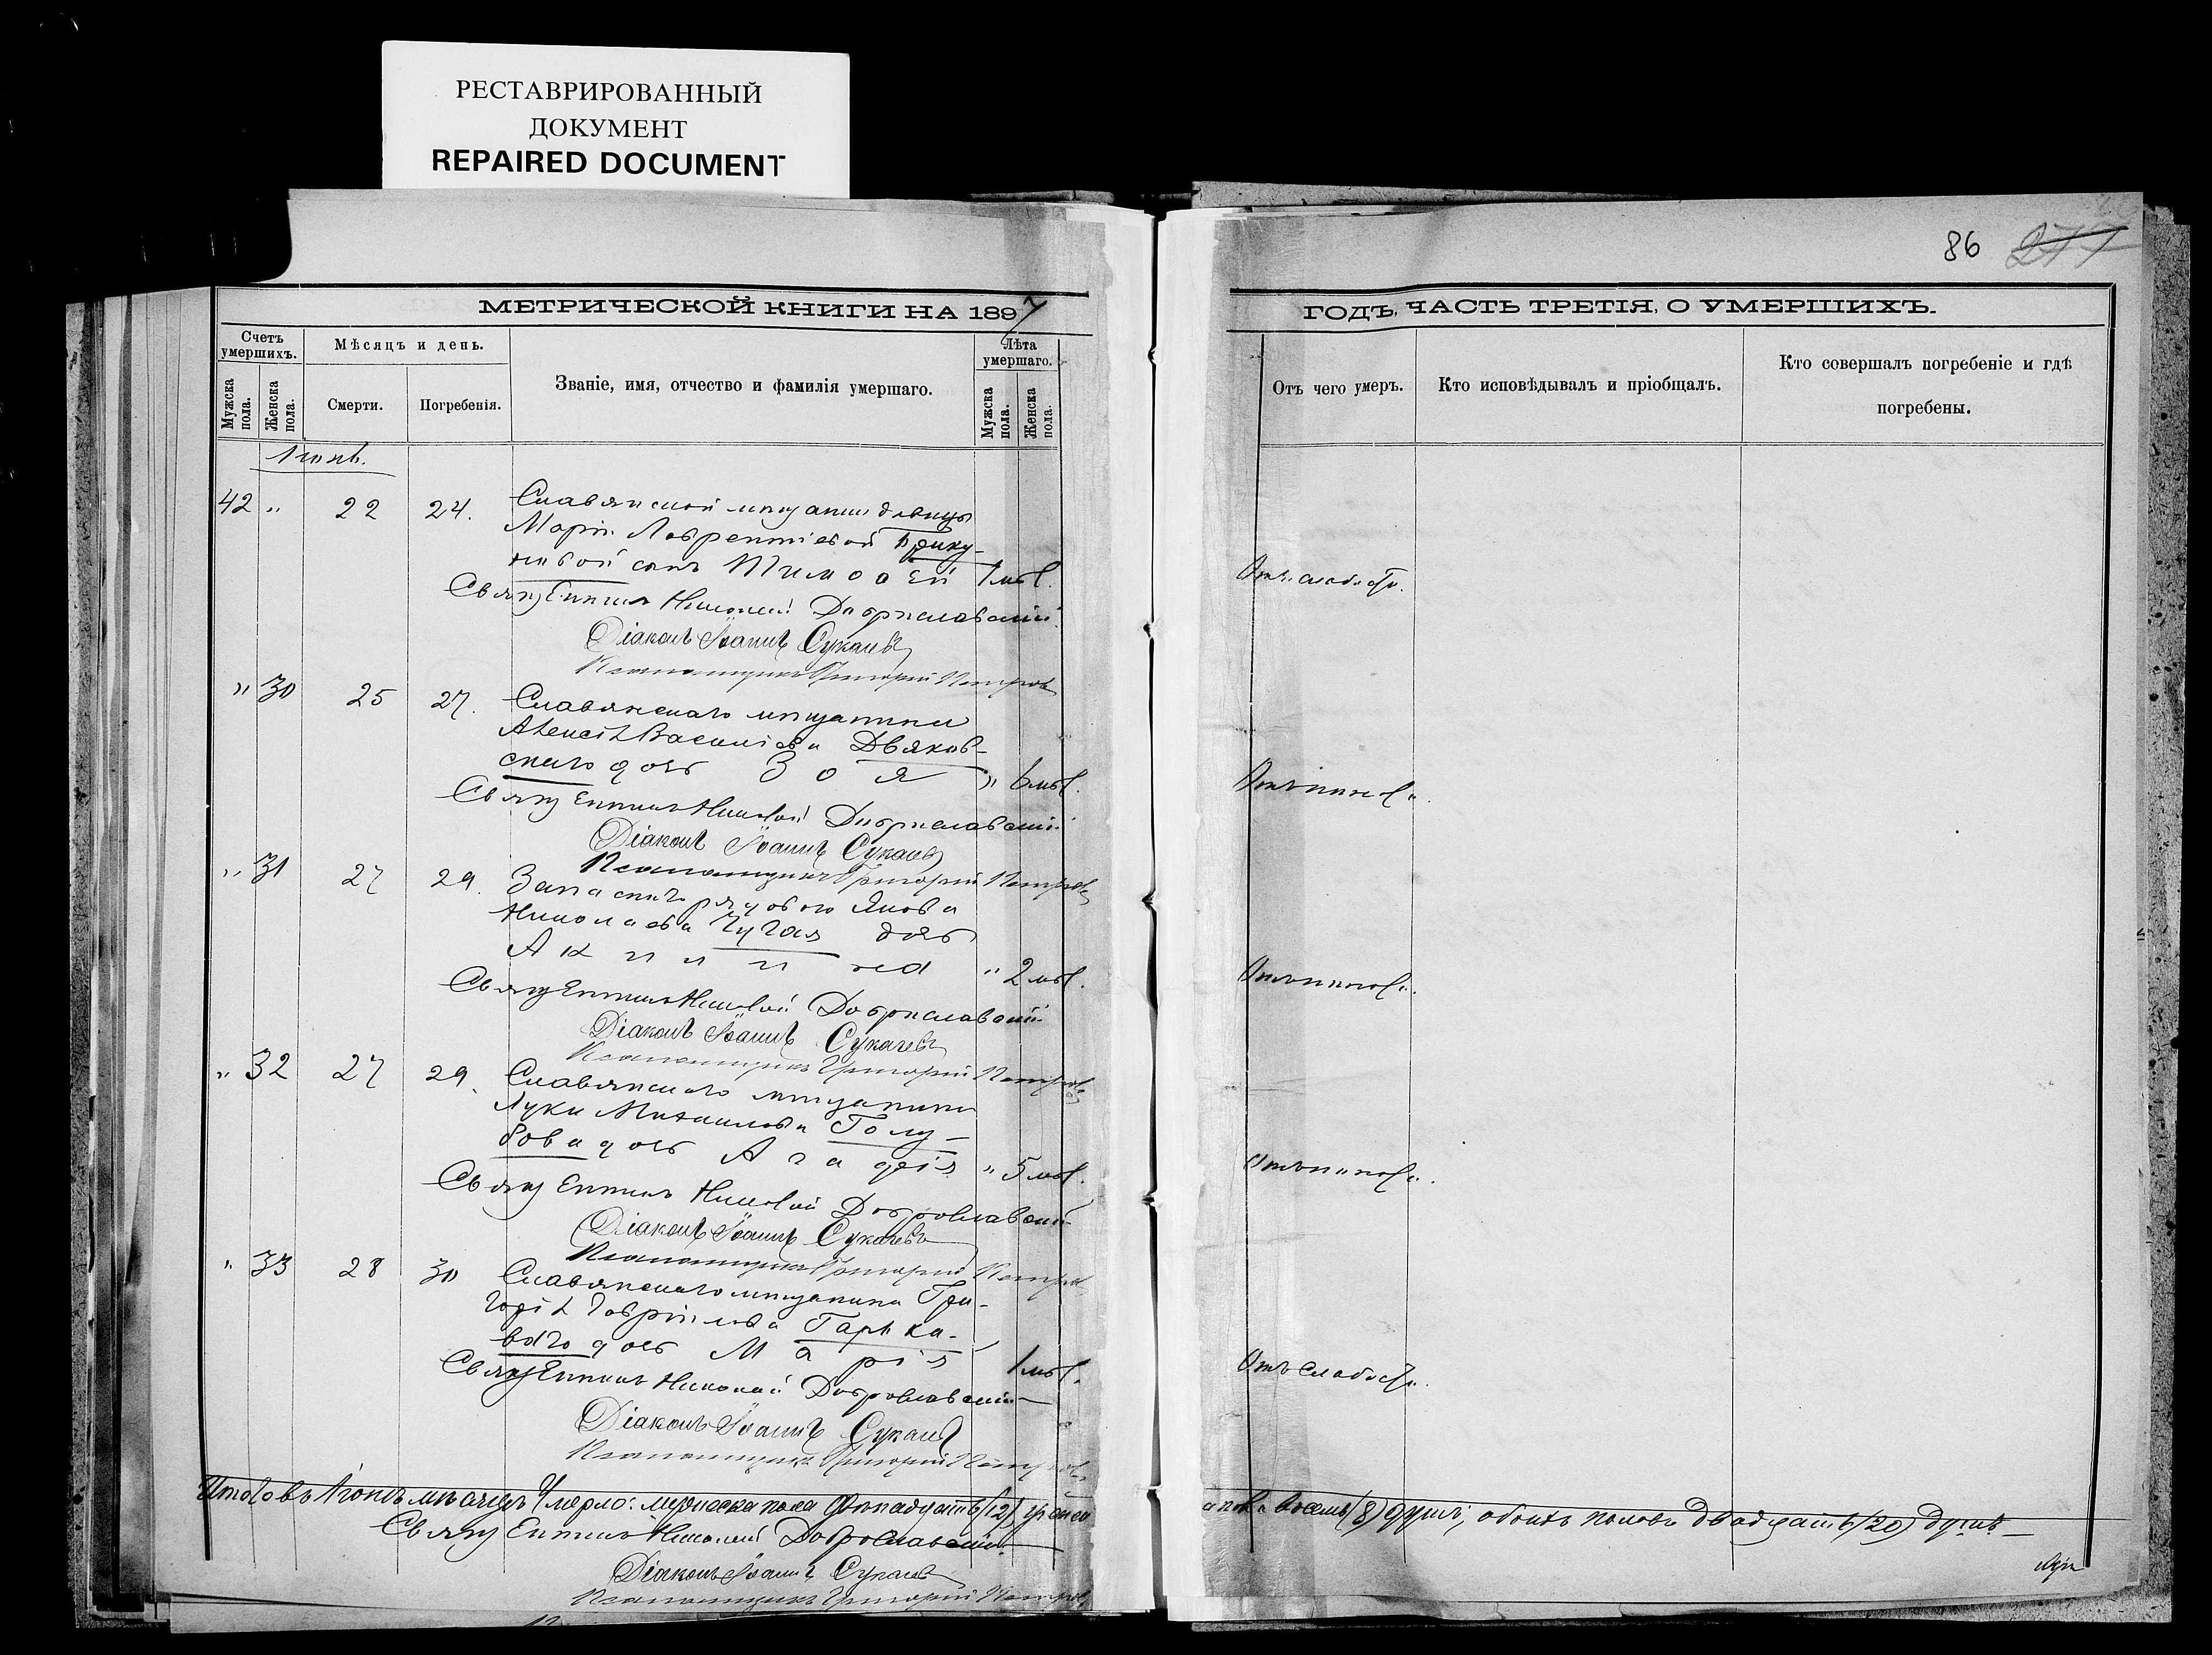 РЕСТАВРИРОВАННЫЙ
ДОКУМЕНТ
REPAIRED DOCUMENT
86 277
МЕТРИЧЕСКОЙ КНИГИ НА 1897
ГОДЪ, ЧАСТЬ ТРЕТІЯ, О УМЕРШИХЪ.
Счетъ умершихъ.
Мужска пола.
Женска пола.
Мѣсяцъ и день.
Смерти.
Погребенія.
Званіе, имя, отчество и фамилія умершаго.
Лѣта умершаго.
Мужска пола.
Женска пола.
Отъ чего умеръ.
Кто исповѣдывалъ и пріобщалъ.
Кто совершалъ погребеніе и гдѣ
погребены.
Іюнь.
42 " 22 24. Славянской мѣщанки дѣвицы
Маріи Лаврентіевой
сынъ Тимоѳей 1 мѣс. Отъ слабости.
Священникъ Николай Доброславскій
Діаконъ Іоаннъ Сукачевъ
Псаломщикъ Григорій Петровъ
" 30 25 27. Славянскаго мѣщанина
Алексѣя Василіева Дьяков-
скаго дочь Зоя " 6 мѣс. Отъ поноса.
Священникъ Николай Доброславскій
Діаконъ Іоаннъ Сукачевъ
Псаломщикъ Григорій Петровъ
" 31 27 29. Запаснаго рядового Якова
Николаева Чугая дочь
Акилина " 2 мѣс. Отъ поноса.
Священникъ Николай Доброславскій
Діаконъ Іоаннъ Сукачевъ
Псаломщикъ Григорій Петровъ
" 32 27 29. Славянскаго мѣщанина
Луки Михаилова Голу-
бова дочь Агафія " 5 мѣс. Отъ поноса.
Священникъ Николай Доброславскій
Діаконъ Іоаннъ Сукачевъ
Псаломщикъ Григорій Петровъ
" 33 28 30 Славянскаго мѣщанина Гри-
горія Гавріилова Гарька-
ваго дочь Марія 1 мѣс. Отъ слабости.
Священникъ Николай Доброславскій
Діаконъ Іоаннъ Сукачевъ
Псаломщикъ Григорій Петровъ
Итого въ Іюнѣ мѣсяцѣ умерло: мужеска пола двѣнадцать (12), женска пола восемь (8) душъ, обоихъ половъ двадцать (20) душъ
Священникъ Николай Доброславскій
Діаконъ Іоаннъ Сукачевъ
Псаломщикъ Григорій Петровъ